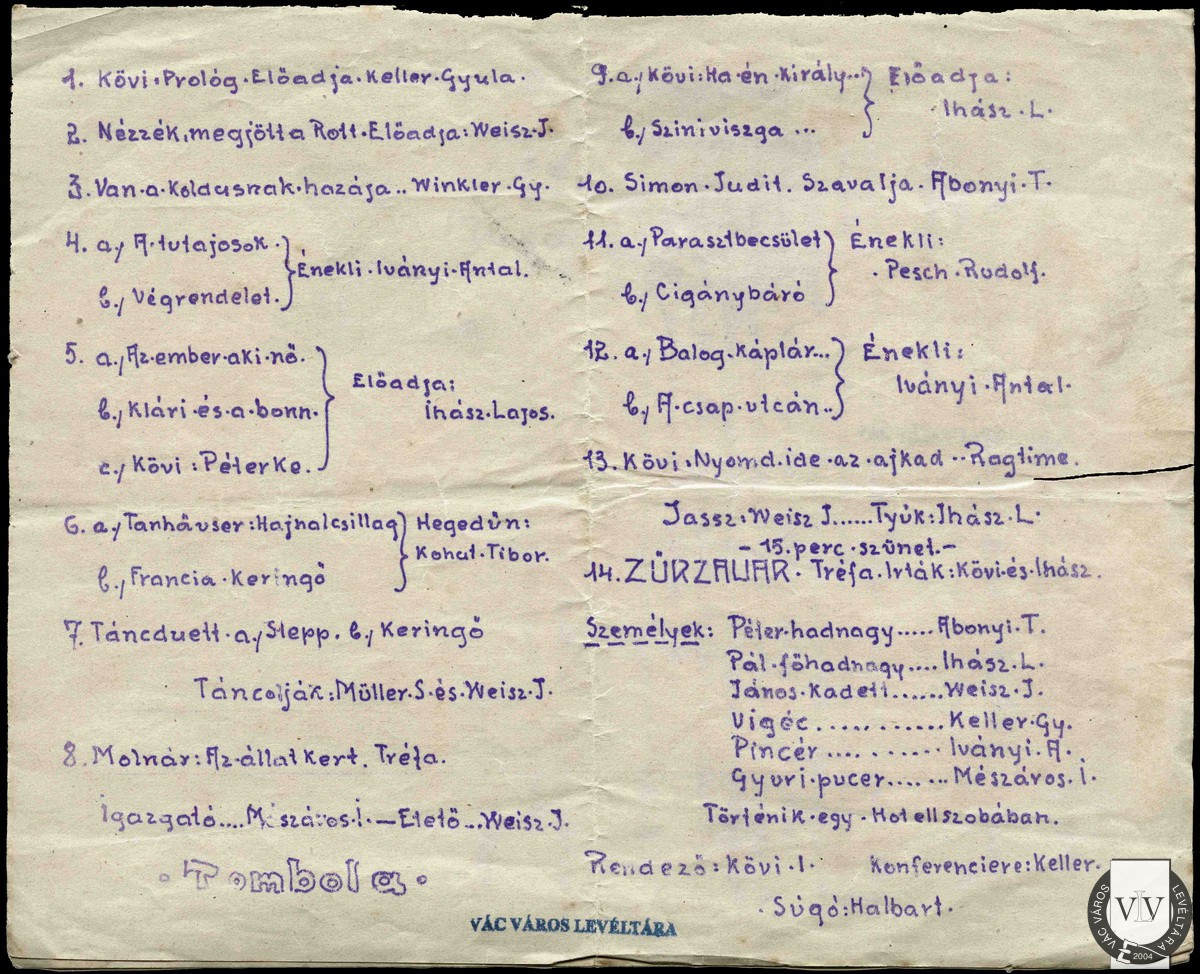 1. Kövi: Prológ. Előadja. Keller. Gyula.
2. Nézzék, megjött a Rott. Előadja: Weisz. J.
3. Van. a. Koldusnak. hazája.. Winkler. Gy.
4. a., A. tutajosok.
Énekli. Iványi. Antal.
b., Végrendelet.
5. a., Az. ember. aki. nő.
b., Klári. és. a. bonn.
Előadja:
Ihász. Lajos.
c., Kövi: Péterke.
6. a., Tanhäuser: Hajnalcsillag
Hegedűn:
Kohut. Tibor.
b., Francia. Keringő
7. Táncduett. a., Stepp. b., Keringő
Táncolják: Müller. S. és. Weisz. J.
8. Molnár: Az. állatkert. Tréfa.
Igazgató.... Mészáros. I. — Etető... Weisz. J.
. Tombola .
9. a., Kövi: Ha. én. Király...
Előadja:
Ihász. L.
b., Sziniviszga ...
10. Simon. Judit. Szavalja. Abonyi. T.
11. a., Parasztbecsület
Énekli:
. Pesch. Rudolf.
b., Cigánybáró
12. a., Balog. káplár...
Énekli:
Iványi. Antal.
b., A. csap. utcán..
13. Kövi: Nyomd. ide. az. ajkad.. Ragtime.
Jassz: Weisz J...... Tyúk: Ihász. L.
- 15. perc. szünet. -
14. ZŰRZAVAR. Tréfa. Irták: Kövi. és. Ihász.
Személyek: Péter. hadnagy..... Abonyi. T.
Pál. főhadnagy.... Ihász. L.
János. kadett...... Weisz. J.
Vigéc............ Keller. Gy.
Pincér........... Iványi. A.
Gyuri. pucer....... Mészáros. I.
Történik. egy. Hotellszobában.
Rendező: Kövi. I. Konferenciere: Keller.
. Súgó: Halbart.
VÁC VÁROS LEVÉLTÁRA
VÁC VÁROS LEVÉLTÁRA
VLV
2004